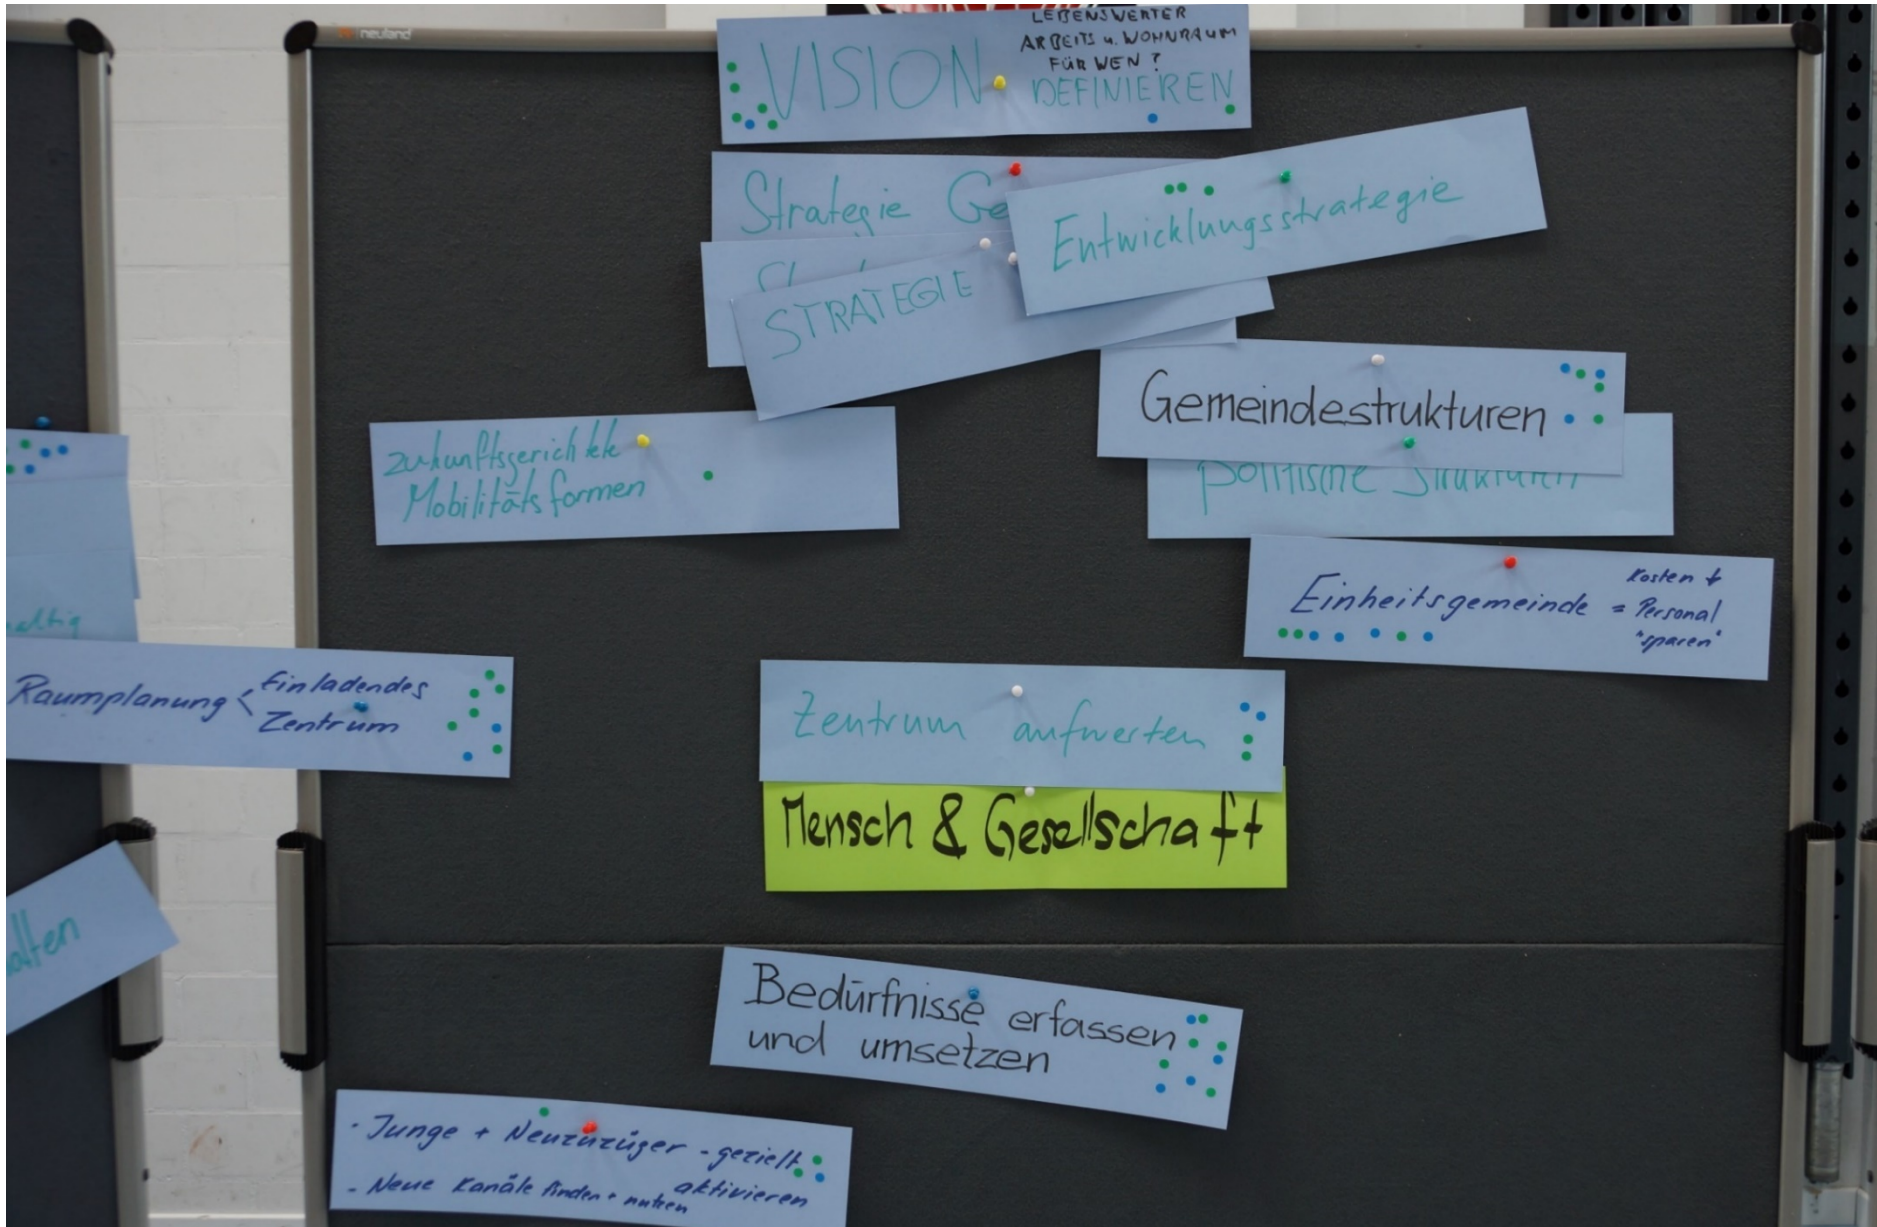 neuland
LEBENSWERTER
ARBEITS u. WOHNRAUM
FÜR WEN?
VISION DEFINIEREN
Strategie
Entwicklungsstrategie
STRATEGIE
Gemeindestrukturen
politische Strukturen
zukunftsgerichtete
Mobilitätsformen
Einheitsgemeinde = Kosten ↓
Personal
"sparen"
Raumplanung < Einladendes
Zentrum
Zentrum aufwerten
Mensch & Gesellschaft
Bedürfnisse erfassen
und umsetzen
- Junge + Neuzuzüger - gezielt
aktivieren
- Neue Kanäle finden + nutzen